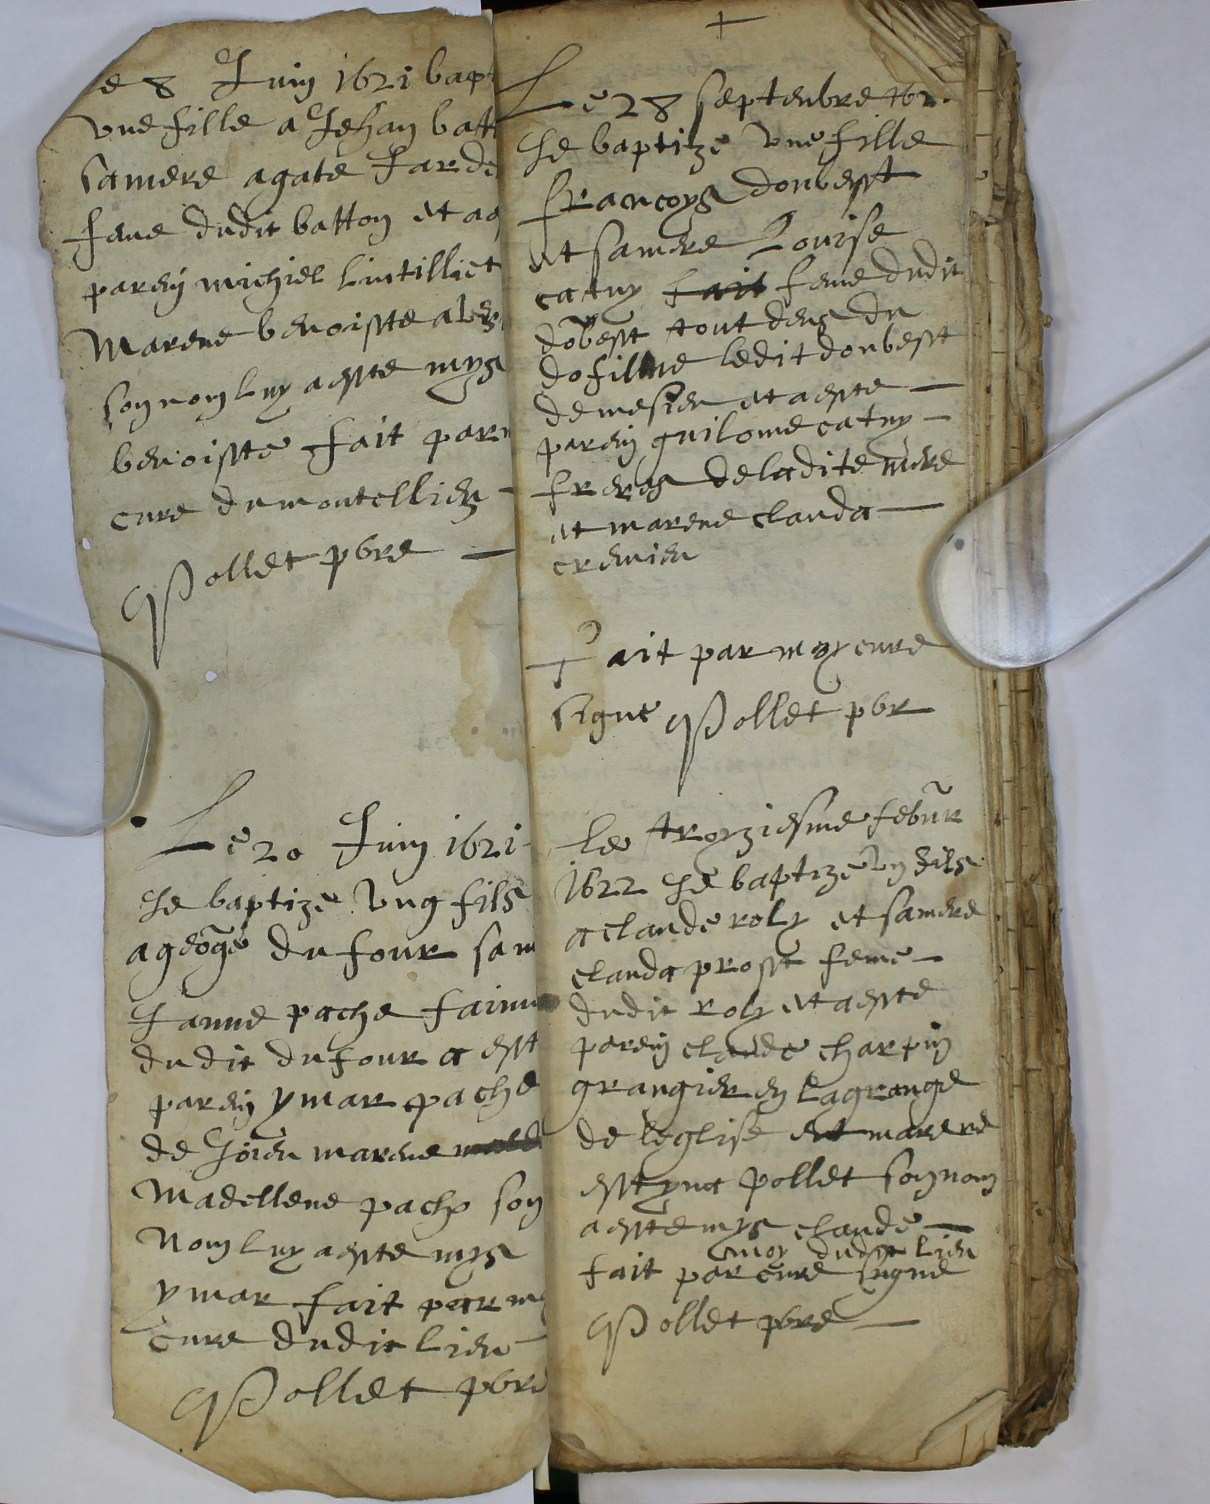 e 8 Juin 1621 bap
une fille a Jehan batt
sa mere agate Jard
feme dudit batton et a
parein michiel lintilliet
Marene benoiste
son nom luy a este mys
benoiste fait par m
cure du montellier
Pollet pbre
Le 20 Juin 1621
Je baptize ung fils
a george du four sa m
Janne pache faimme
dudit du four a est
parein ymar pache
de marene
Madellene pache son
Nom luy a este mys
ymar fait par m
cure dudit lieu
Pollet pbre
Le 28 septenbre 162
Je baptize une fille
francoys doubest
et sa mere Louise
catuy feme dudit
dobest tout deus du
dofilne ledit doubest
de mesieu et a este
parein guilome catuy
freres de ladite mere
et marene clauda
cremieu
Fait par moy cure
signe Pollet pbr
Le troyziesme febur
1622 Je baptize un fils
a claude roly et sa mere
clauda prost feme
dudit roly et a este
parein claude charpin
grangier en la grange
de leglise et marere
est yna pollet son nom
a este mys claude
moy dudit lieu
fait par cure signe
Pollet pbre